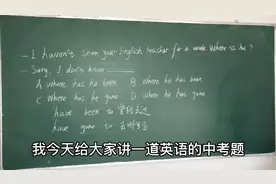 — I haven't seen your English teacher for a week. Where is he?
— Sorry, I don't know
A where has he been B where he has been
C where has he gone D where he has gone
have been to 曾经去过
have gone to 去哪了
我今天给大家讲一道英语的中考题